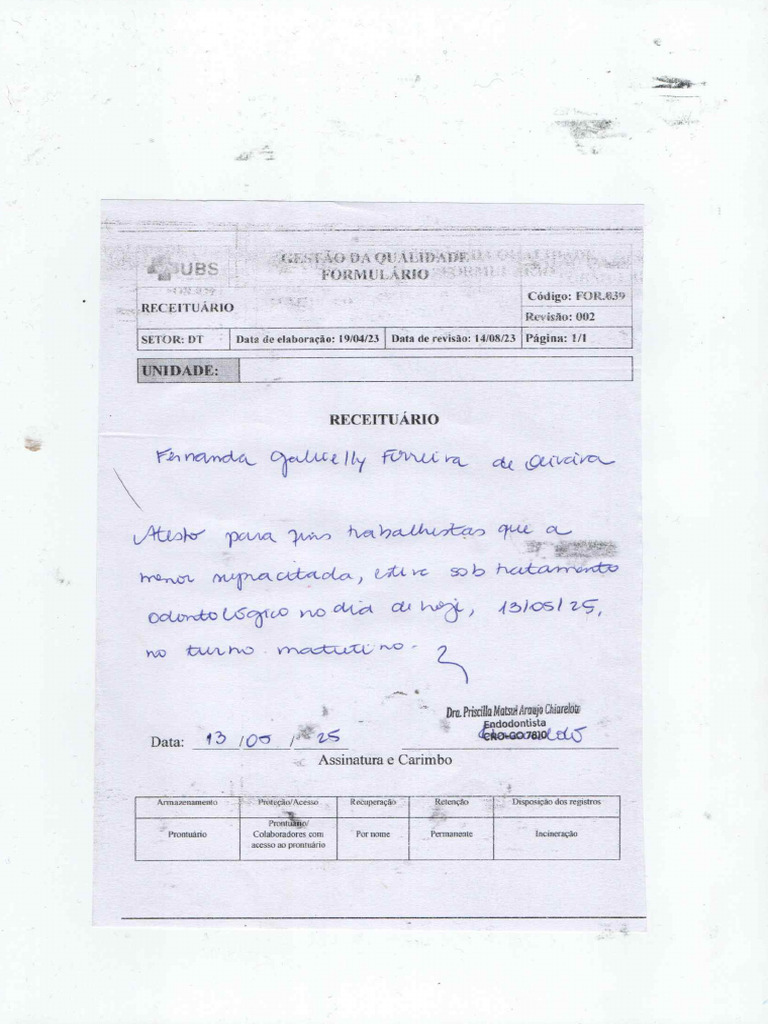 UBS
GESTÃO DA QUALIDADE
FORMULÁRIO
RECEITUÁRIO
Código: FOR.039
Revisão: 002
SETOR: DT
Data de elaboração: 19/04/23
Data de revisão: 14/08/23
Página: 1/1
UNIDADE:
RECEITUÁRIO
Fernanda Gabrielly Ferreira de Oliveira
Atesto para fins trabalhistas que a
menor supracitada, esteve sob tratamento
odontológico no dia de hoje, 13/05/25,
no turno matutino.
Dra. Priscilla Matsui Araujo Chiarelotο
Endodontista
CRO-GO 7810
Data: 13 / 05 / 25
Assinatura e Carimbo
Armazenamento Proteção/Acesso Recuperação Retenção Disposição dos registros
Prontuário Prontuário/ Colaboradores com acesso ao prontuário Por nome Permanente Incineração